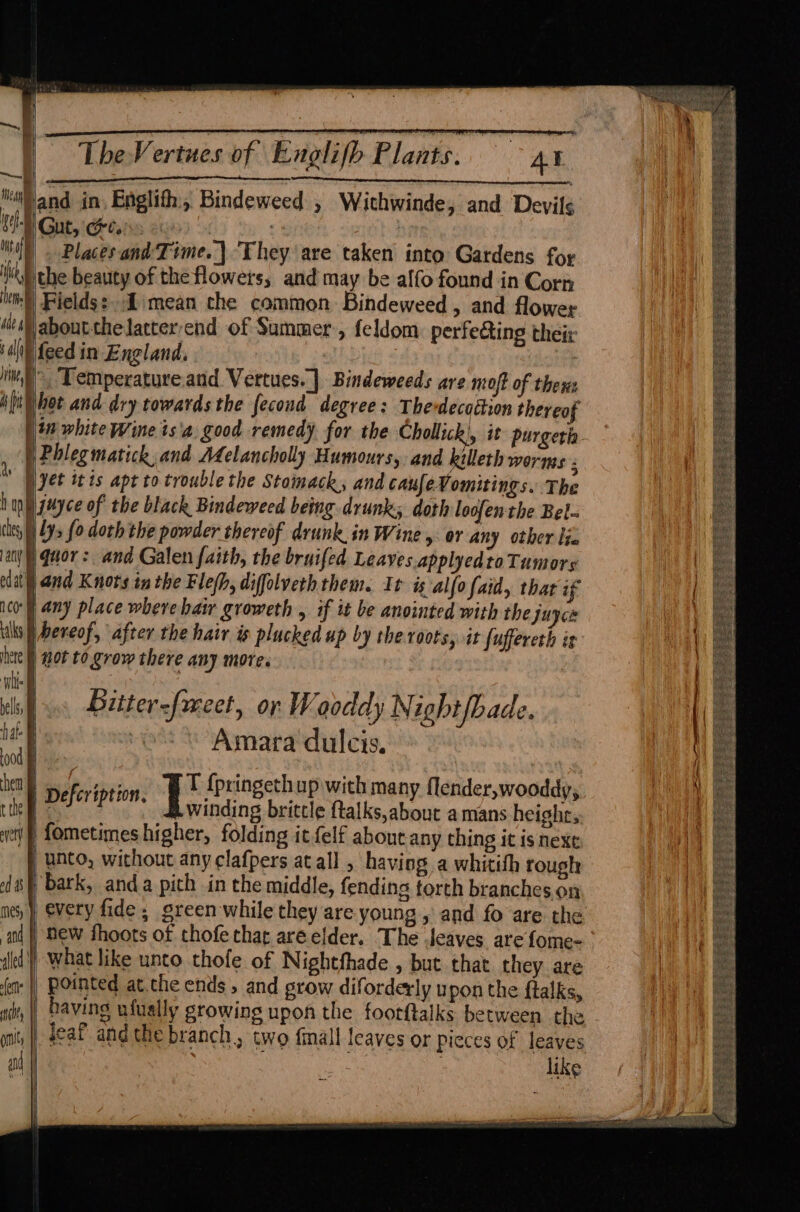 The Vertues of Engliſh Plants. 41
and in Engliſh, Bindeweed, Withwinde, and Devils
Gut, &c.
Places and Time.] They are taken into Gardens for
the beauty of the flowers, and may be alſo found in Corn
Fields: I mean the common Bindeweed, and flower
about the latter end of Summer, ſeldom perfecting their
ſeed in England.
Temperature and Vertues.] Bindeweeds are moſt of them
hot and dry towards the ſecond degree: The decoction thereof
in white Wine is a good remedy for the Chollick, it purgeth
Phlegmatick and Melancholly Humours, and killeth worms;
yet it is apt to trouble the Stomack, and cauſe Vomitings. The
juyce of the black Bindeweed being drunk, doth looſen the Bel-
ly, ſo doth the powder thereof drunk in Wine, or any other li-
quor: and Galen ſaith, the bruiſed Leaves applyed to Tumors
and Knots in the Fleſh, diſſolveth them. It is alſo ſaid, that if
any place where hair groweth, if it be anointed with the juyce
hereof, after the hair is plucked up by the roots, it ſuffereth it
not to grow there any more.
Bitter-ſweet, or Wooddy Nightſhade.
Amara dulcis.
Deſcription. IT ſpringeth up with many ſlender, wooddy,
winding brittle ſtalks, about a mans height,
ſometimes higher, folding it ſelf about any thing it is next
unto, without any claſpers at all, having a whitiſh rough
bark, and a pith in the middle, ſending forth branches on
every ſide; green while they are young, and ſo are the
new ſhoots of thoſe that are elder. The leaves are ſome-
what like unto thoſe of Nightſhade, but that they are
pointed at the ends, and grow diſorderly upon the ſtalks,
having uſually growing upon the footſtalks between the
leaf and the branch, two ſmall leaves or pieces of leaves
like